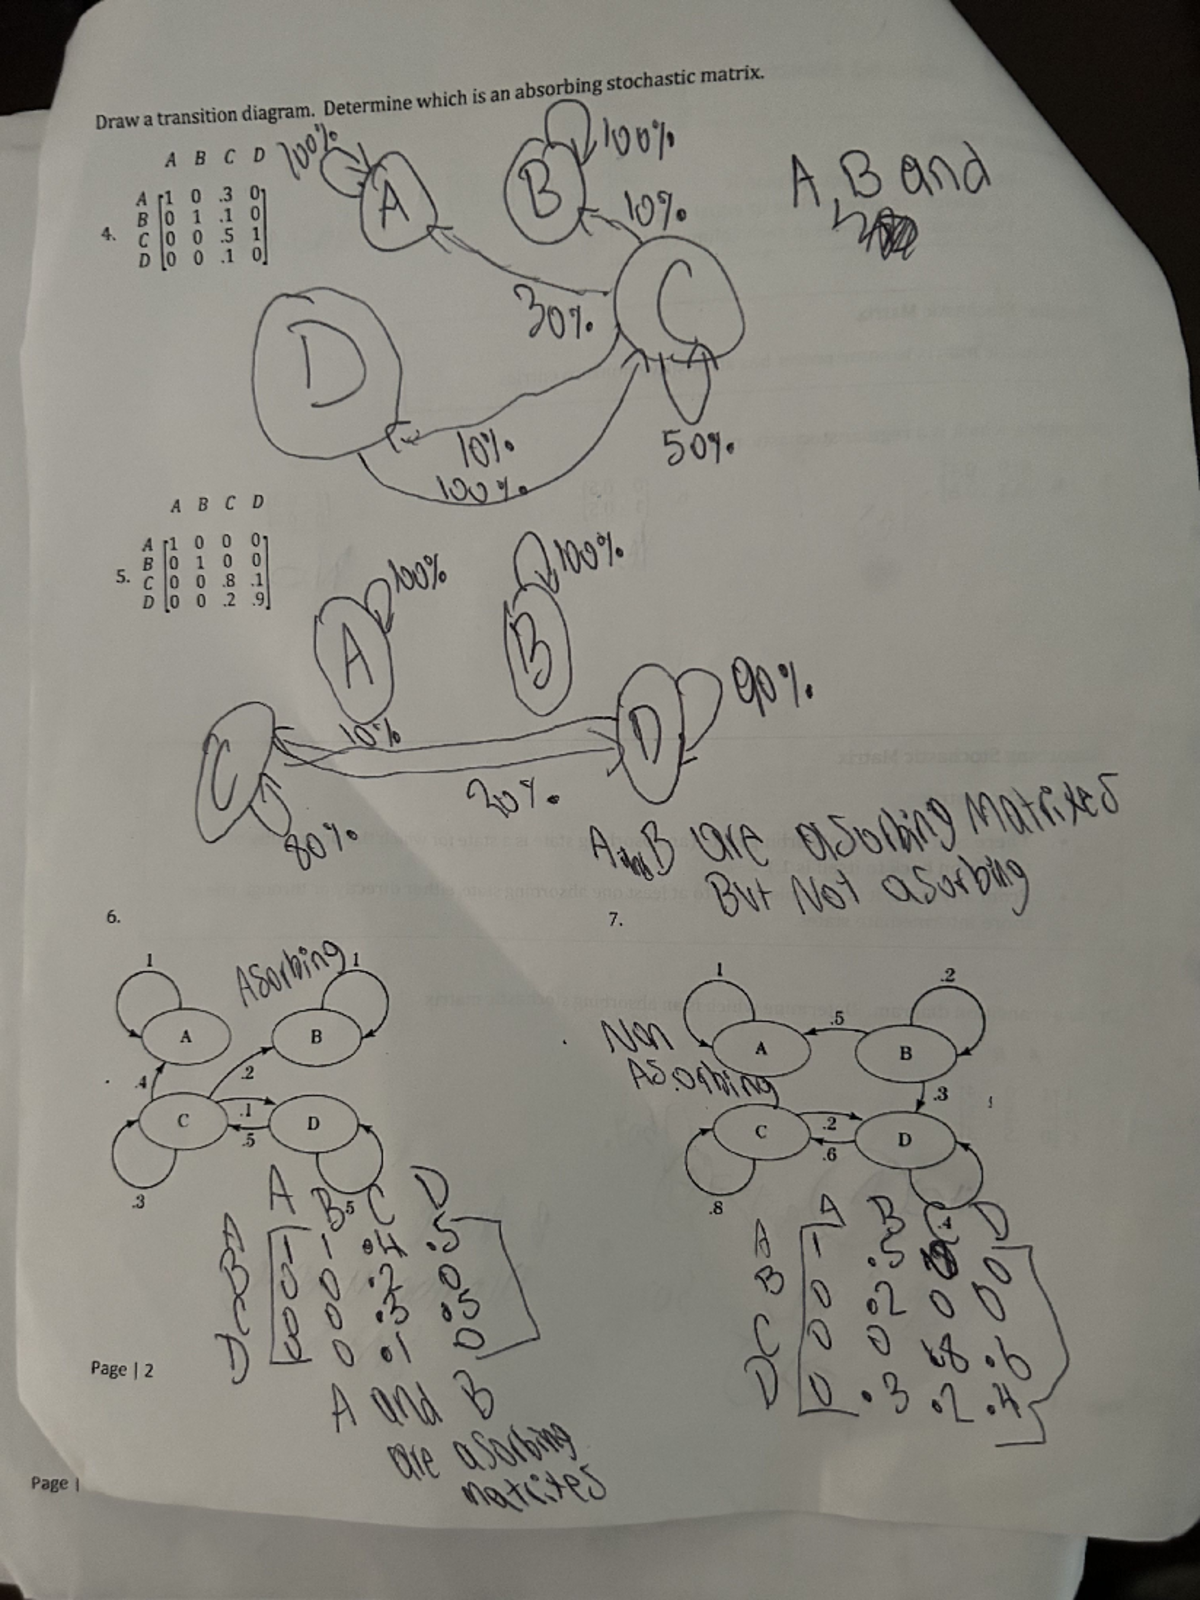 Draw a transition diagram. Determine which is an absorbing stochastic matrix.
A B C D
4.
A 1 0 .3 0
B 0 1 .1 0
C 0 0 .5 1
D 0 0 .1 0
100%
A
B
100%
10%
A, B and
30%
C
D
10%
100%
50%
A B C D
5.
A 1 0 0 0
B 0 1 0 0
C 0 0 .8 .1
D 0 0 .2 .9
A
100%
B
100%
C
10%
D
90%
20%
80%
A B are asorbing Matrixes
But Not asorbing
6.
Asorbing
1
1
A
B
.4
.2
C
.1
.5
D
.3
.5
A B C D
A 1 1 .4 .5
B 0 0 .2 0
C 0 0 .3 .5
D 0 0 .1 0
A and B
are asorbing
matrixes
7.
Non
Asorbing
1
.2
A
.5
B
.3
C
.2
.6
D
.8
.4
A B C D
A 1 .5 0
B 0 .2 0 0
C 0 0 .8 .6
D 0 .3 .2 .4
Page | 2
Page |